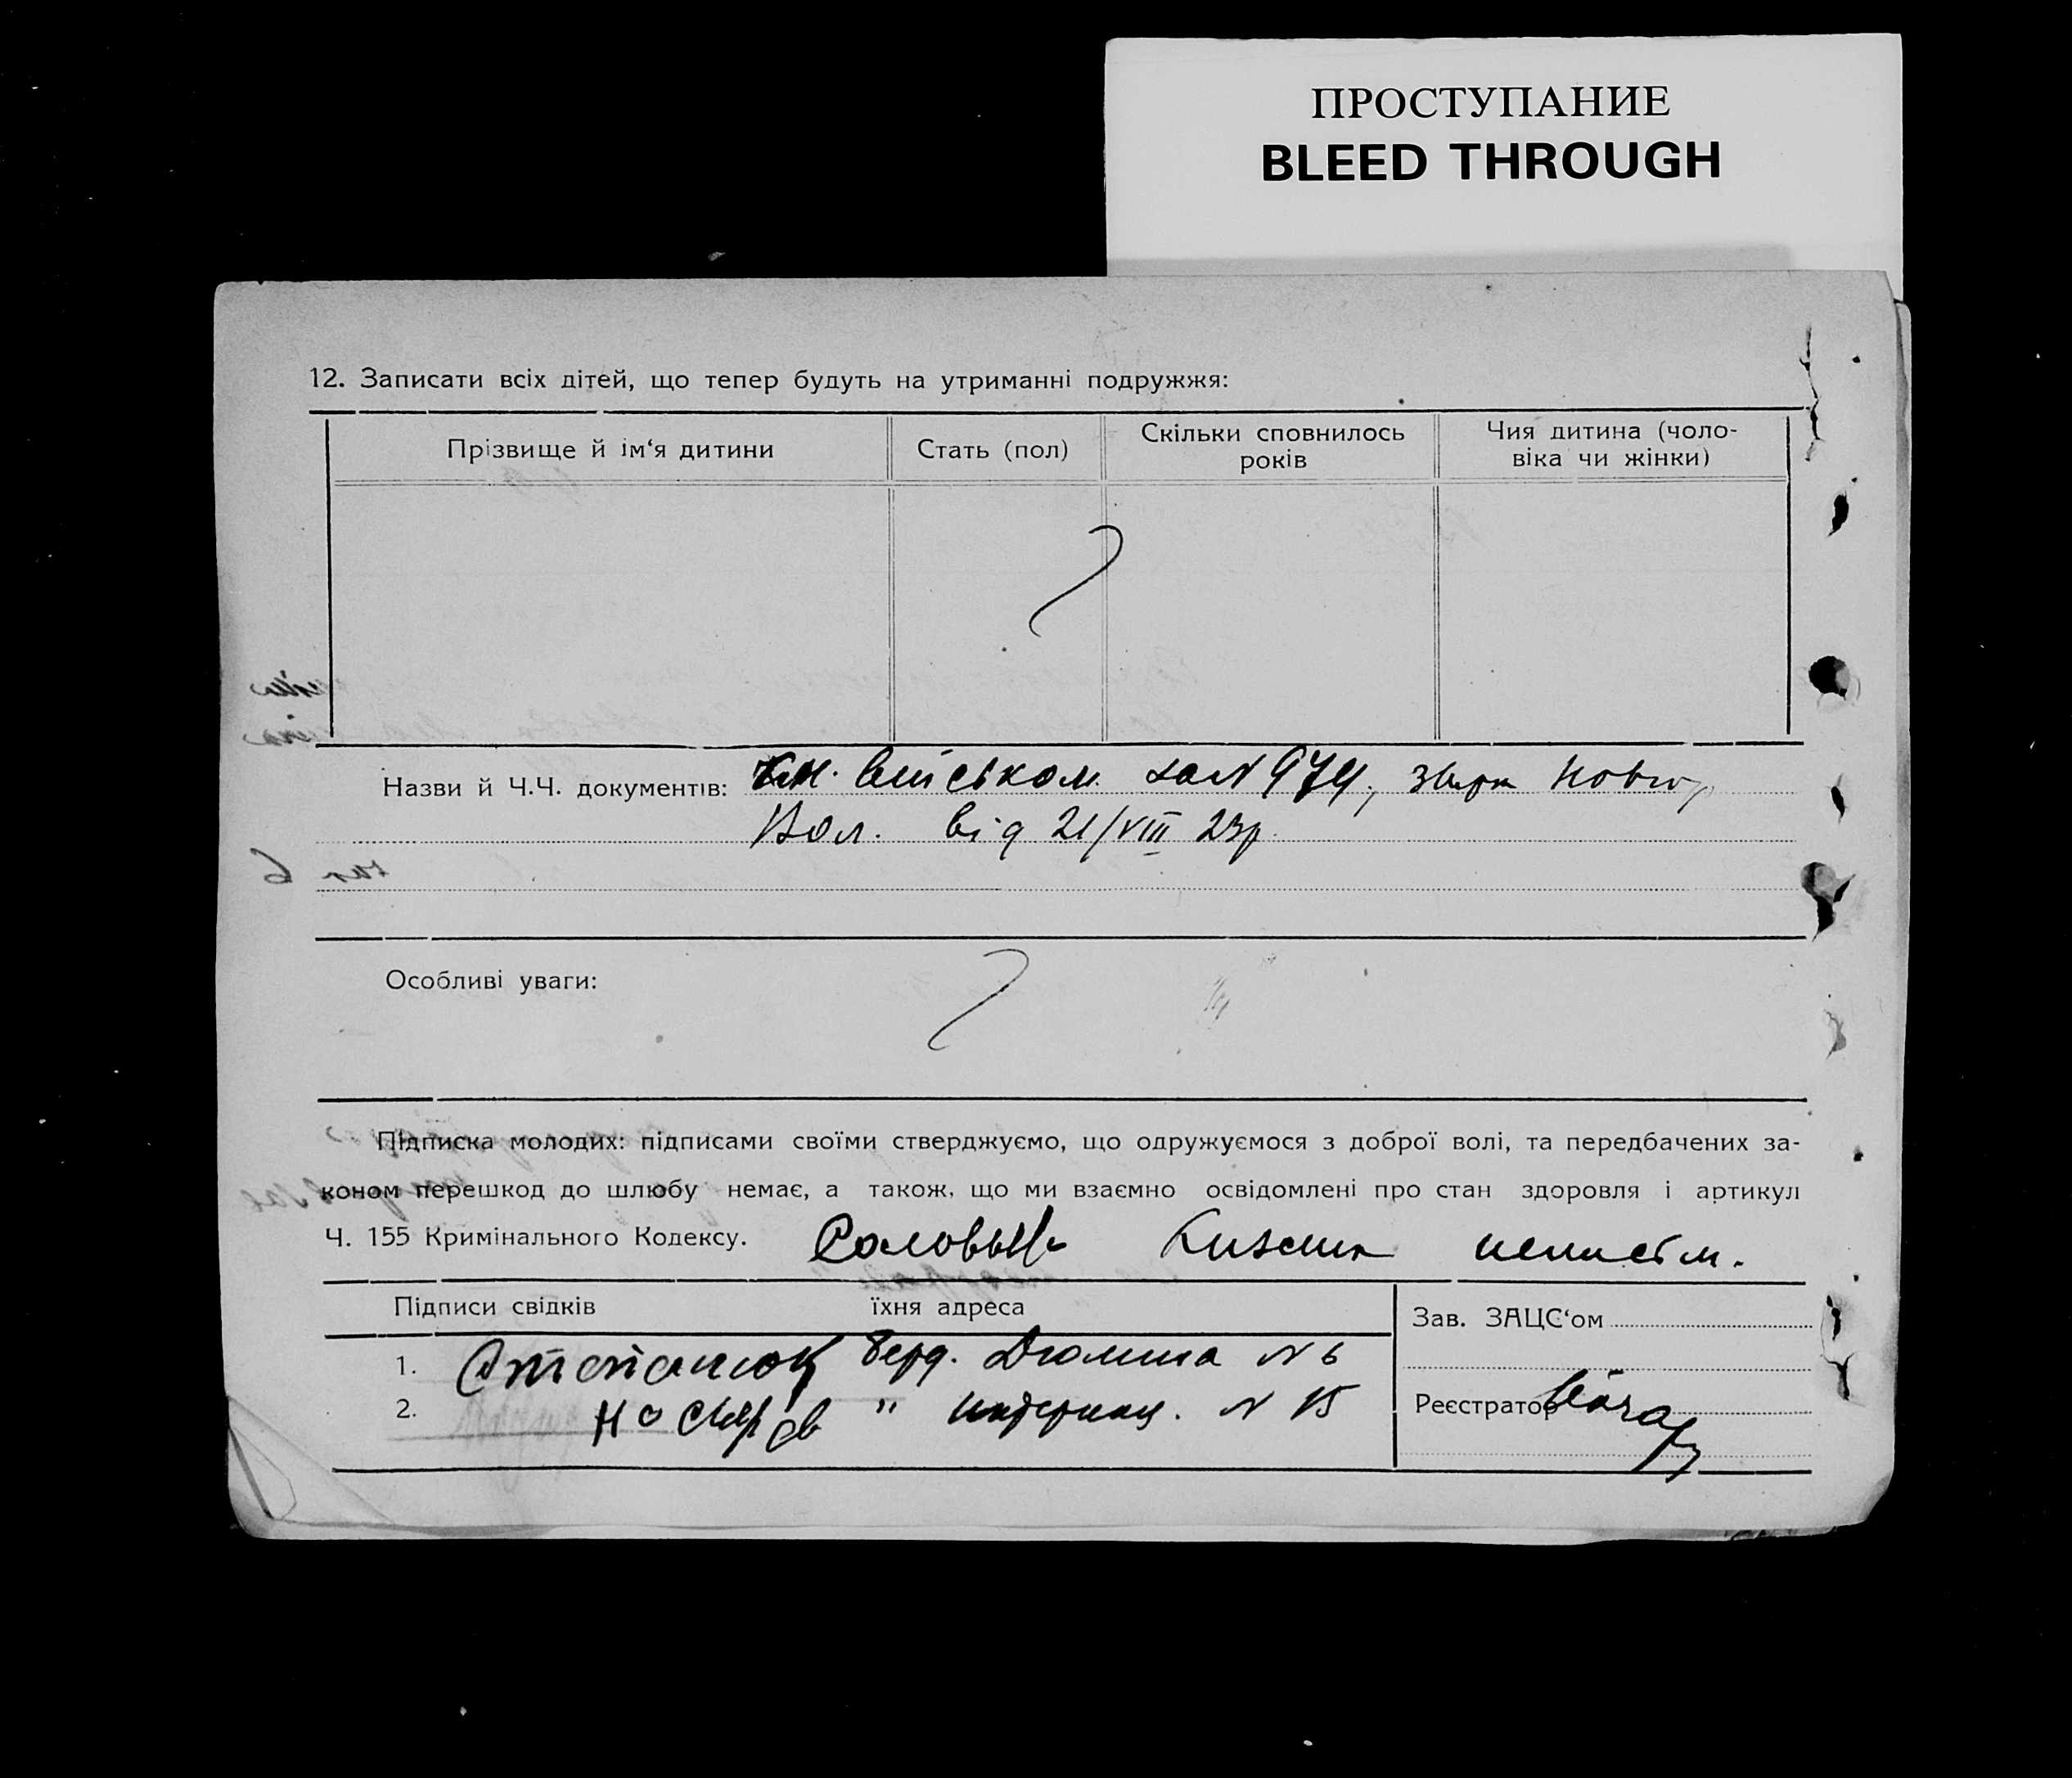 ПРОСТУПАНИЕ
BLEED THROUGH
12. Записати всіх дітей, що тепер будуть на утриманні подружжя:
Прізвище й ім‘я дитини
Стать (пол)
Скільки сповнилось
років
Чия дитина (чоло-
віка чи жінки)
Назви й Ч.Ч. документів: військом. за N 974,
Вол. від 21/VIII 23р.
Особливі уваги:
Підписка молодих: підписами своїми стверджуємо, що одружуємося з доброї волі, та передбачених за-
коном перешкод до шлюбу немає, а також, що ми взаємно освідомлені про стан здоровля і артикул
Ч. 155 Кримінального Кодексу.
Підписи свідків їхня адреса
Зав. ЗАЦС‘ом
1. Берд. N 6
2. " N 15
Реєстратор